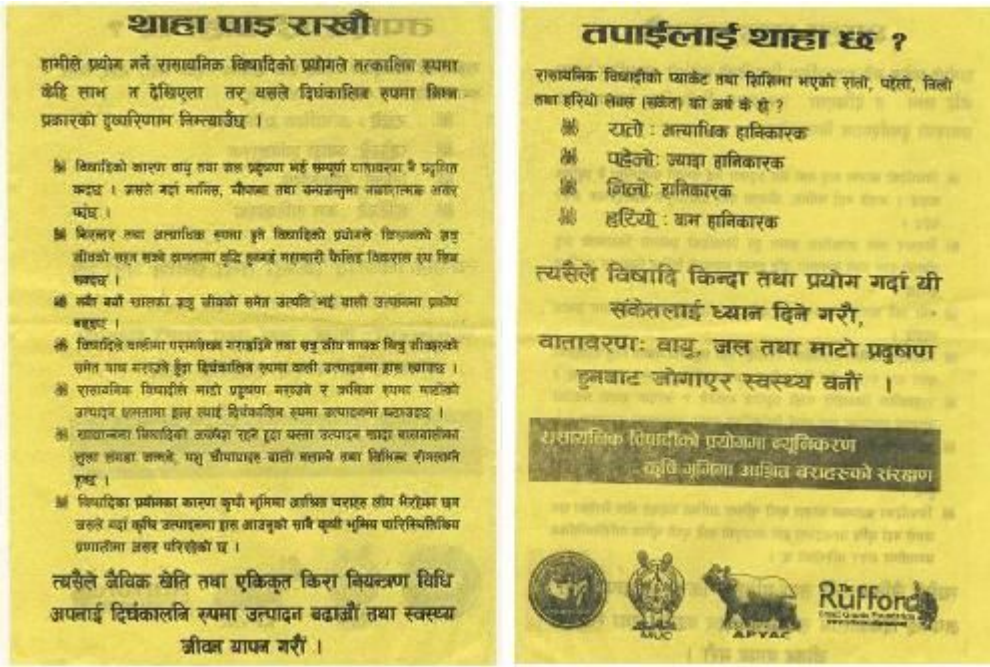 थाहा पाइ राखौं
हामीले प्रयोग गर्ने रासायनिक विषादिको प्रयोगले तत्कालिन रुपमा
केहि लाभ न देखिएला तर यसले दिर्घकालिन रुपमा निम्न
प्रकारको दुष्परिणाम निम्त्याउँछ ।
विषादिको कारण वायु तथा जल प्रदुषण भई सम्पूर्ण वातावरण नै प्रदुषित
गर्दछ । जसले गर्दा मानिस, चौपाया तथा वन्यजन्तुमा नकारात्मक असर
पर्दछ ।
निरन्तर तथा अत्याधिक रुपमा हुने विषादिको प्रयोगले किसानको शत्रु
जीवको सहन सक्ने क्षमतामा वृद्धि हुनगई महामारी फैलिइ विकराल रुप लिन
सक्दछ ।
नयाँ नयाँ खालका शत्रु जीवको समेत उत्पति भई बाली उत्पादनमा प्रकोप
बढ्दछ ।
विषादिले बालीमा परागसेचन गराइदिने तथा शत्रु जीव नाशक मित्रु जीवहरुको
समेत नाश गराउने हुँदा दिर्घकालिन रुपमा बाली उत्पादनमा ह्रास ल्याउँछ ।
रासायनिक विषादीले माटो प्रदुषण गराउने र क्रमिक रुपमा माटोको
उत्पादन क्षमतामा ह्रास ल्याई दिर्घकालिन रुपमा उत्पादनमा घटाउदछ ।
खाद्यान्नमा विषादिको अवशेष रहने हुदा यस्ता उत्पादन खादा बालबालीका
लुला लंगडा जन्मने, पशु चौपायाहरु थला बसाल्ने तथा विभिन्न रोगलाग्ने
हुन्छ ।
विषादिका प्रयोगका कारण कृषी भूमिमा आश्रित चराहरु लोप भैरहेका छन
जसले गर्दा कृषि उत्पादनमा ह्रास आउनुको साथै कृषी भूमिय पारिस्थितिकिय
प्रणालीमा असर परिरहेको छ ।
त्यसैले जैविक खेति तथा एकिकृत किरा नियन्त्रण विधि
अपनाई दिर्घकालनि रुपमा उत्पादन बढाऔं तथा स्वस्थ्य
जीवन यापन गरौं ।
तपाईलाई थाहा छ ?
रासायनिक विषादीको प्याकेट तथा शिशिमा भएको रातो, पहेंलो, निलो
तथा हरियो लेवल (संकेत) को अर्थ के हो ?
रातो : अत्याधिक हानिकारक
पहेंलो: ज्यादा हानिकारक
निलो: हानिकारक
हरियो : कम हानिकारक
त्यसैले विषादि किन्दा तथा प्रयोग गर्दा यी
संकेतलाई ध्यान दिने गरौं,
वातावरण: वायु, जल तथा माटो प्रदुषण
हुनबाट जोगाएर स्वस्थ्य बनौं ।
रासायनिक विषादीको प्रयोगमा न्यूनिकरण
कृषि भूमिमा आश्रित चराहरुको संरक्षण
MUC
APYAC
The
Rufford